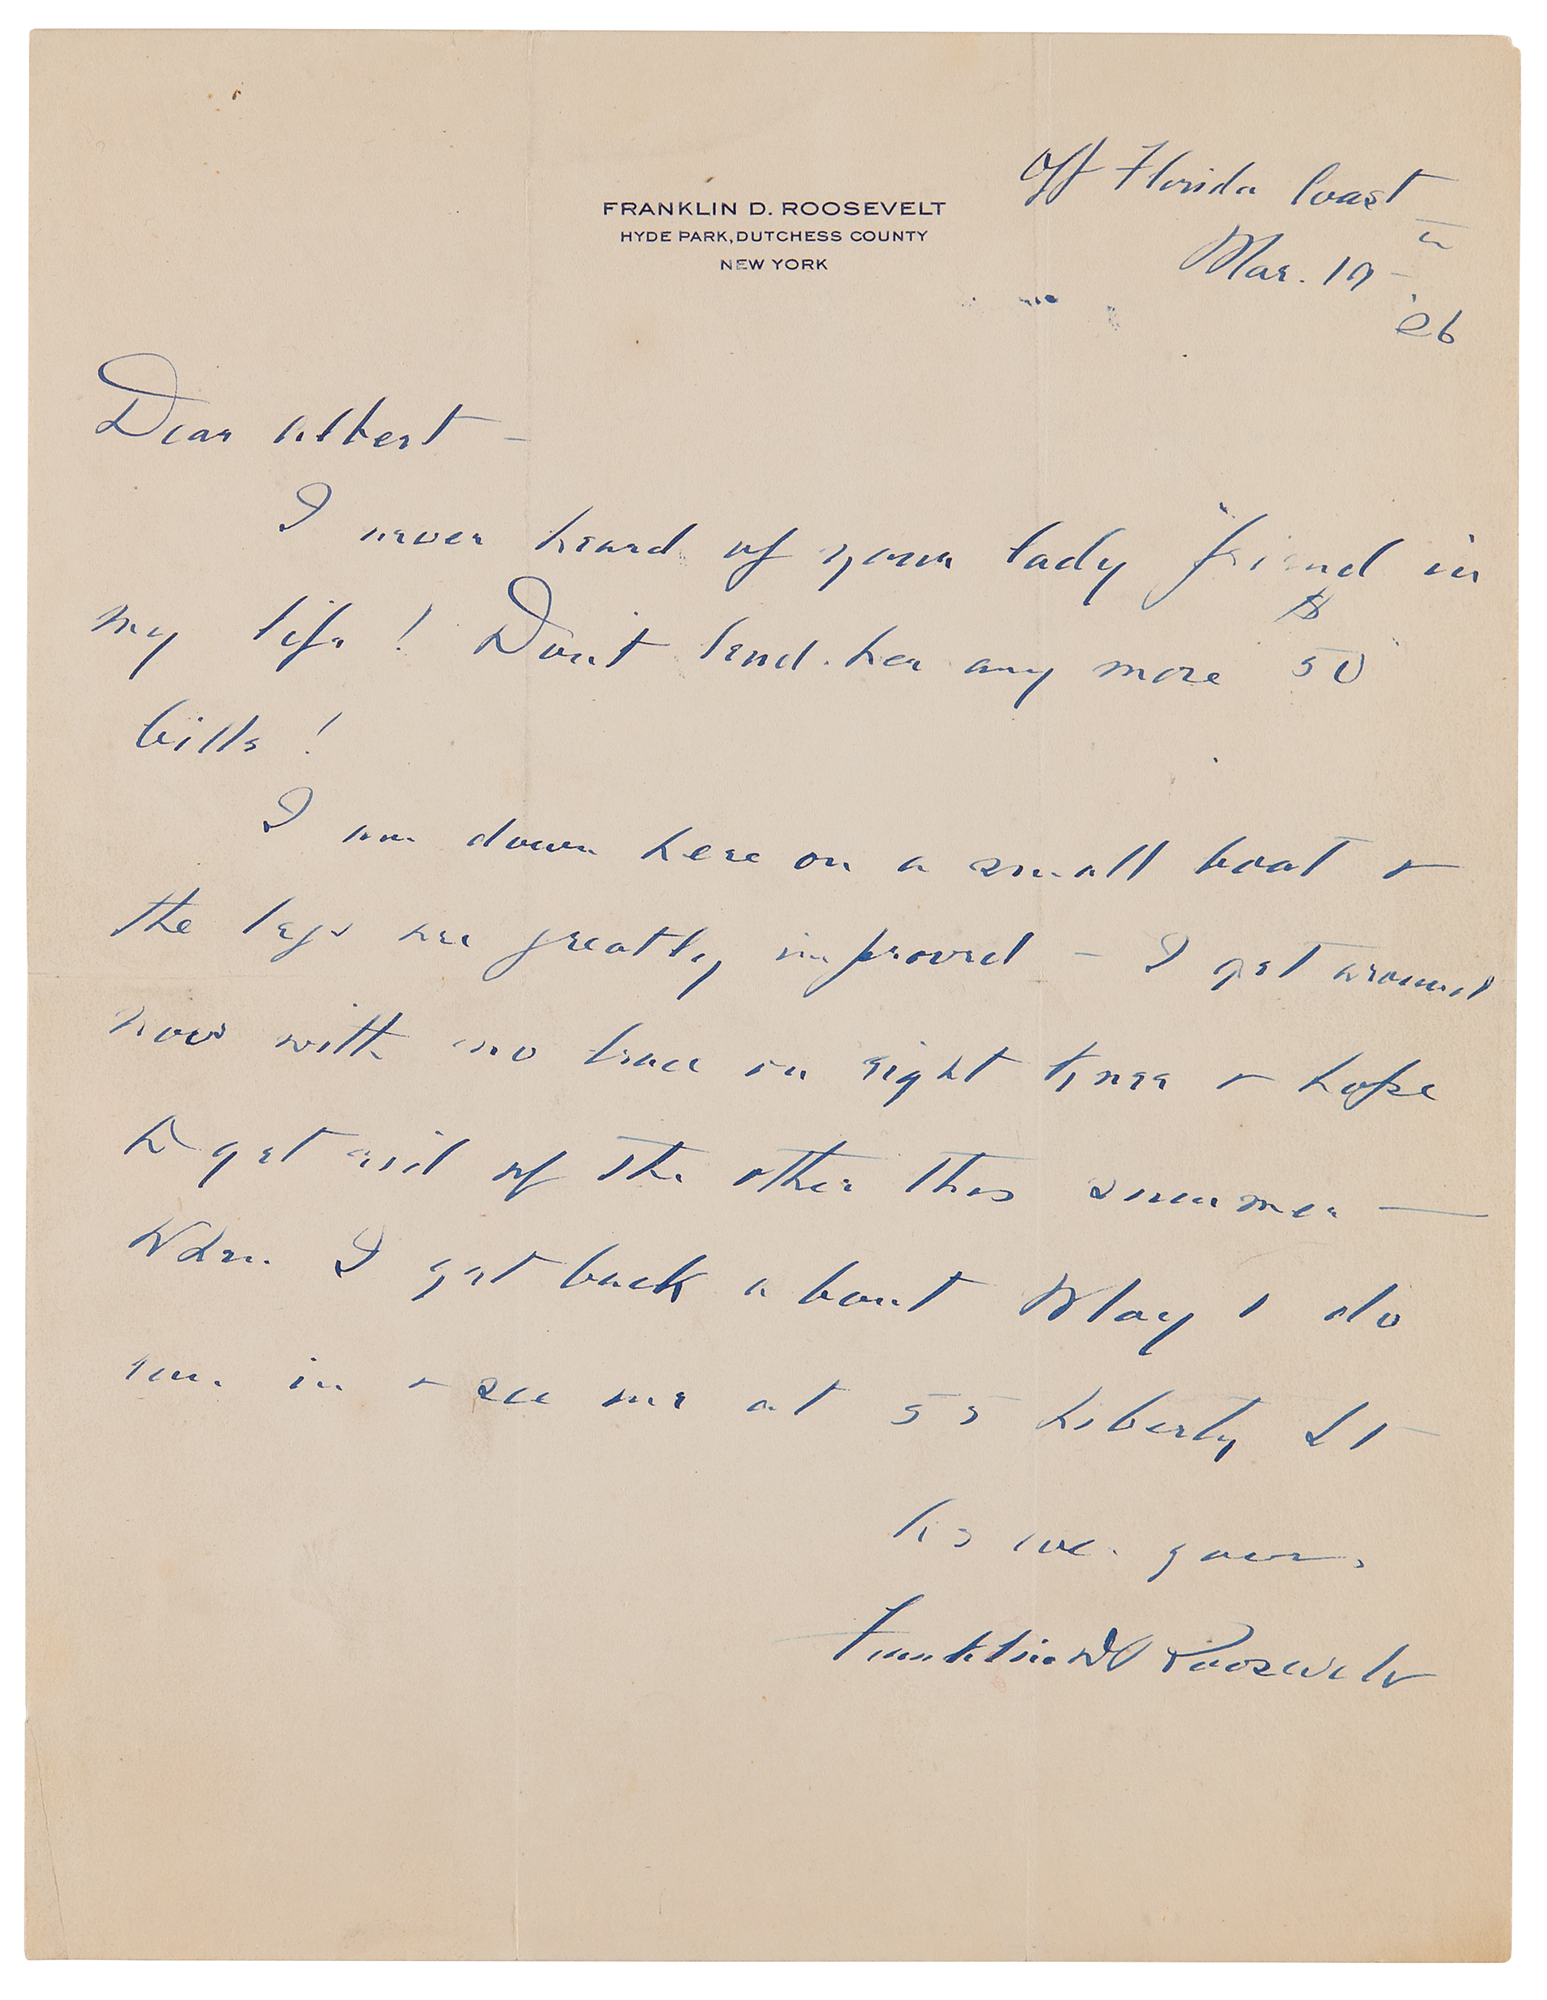 FRANKLIN D. ROOSEVELT
HYDE PARK, DUTCHESS COUNTY
NEW YORK
Off Florida Coast
Mar. 19
'26
Dear Albert –
I never heard of your lady friend in
my life! Don't lend her any more $50
bills!
I am down here on a small boat &
the legs are greatly improved – I get around
now with no brace on right knee & hope
to get rid of the other this summer —
When I get back about May 1 do
run in & see me at 55 Liberty St
As ever yours
Franklin D Roosevelt